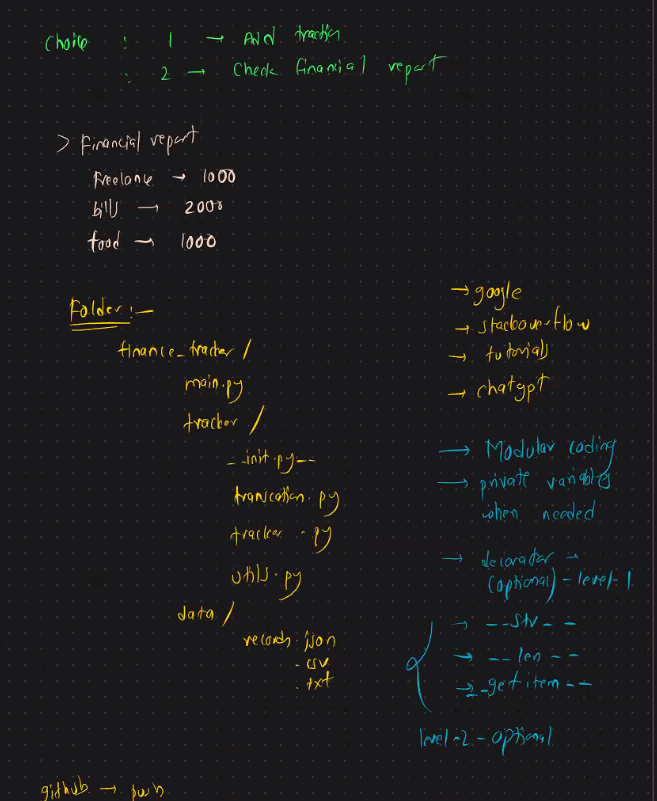 choice : 1 → Add traction
: 2 → Check financial report
> Financial report
Freelance → 1000
bills → 2000
food → 1000
Folder :-
finance_tracker /
main.py
tracker /
--init.py--
transcation.py
tracker.py
utils.py
data /
records.json
.csv
.txt
→ google
→ stackoverflow
→ tutorials
→ chatgpt
→ Modular coding
→ private variables
when needed
→ decorator →
(optional) - level-1
→ --str--
→ --len--
→ --getitem--
level-2 - optional
github → push